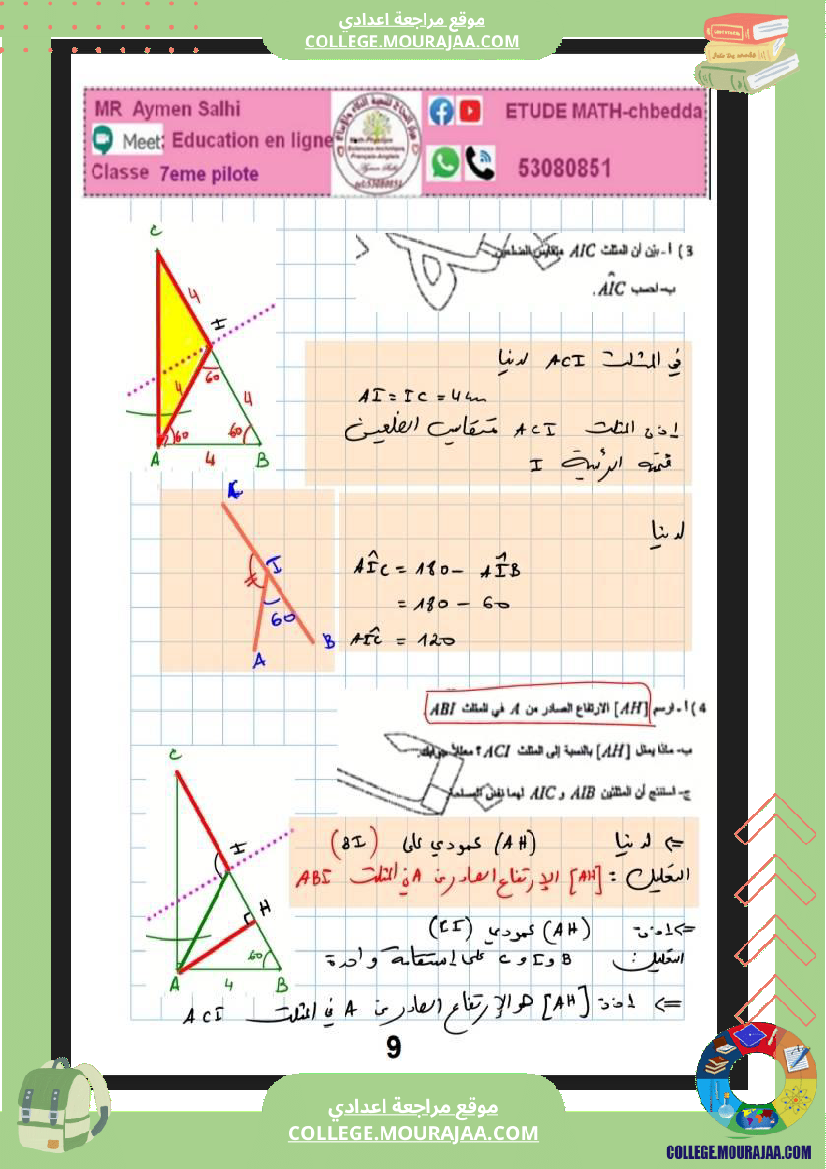 موقع مراجعة اعدادي
COLLEGE.MOURAJAA.COM
MR Aymen Salhi
Meet: Education en ligne
Classe 7eme pilote
ETUDE MATH-chbedda
53080851
3 ) أ - بيّن أن المثلث AIC متقايس الضلعين
ب- احسب AÎC .
C
4
I
4
60
4
60
60
A
4
B
في المثلث ACI لدينا
AI = IC = 4 cm
إذن المثلث ACI متقايس الضلعين
قمته الرئيسية I
I
60
B
A
لدينا
AÎC = 180 - AÎB
= 180 - 60
AÎC = 120
4 ) أ - ارسم [AH] الارتفاع الصادر من A في المثلث ABI
ب- ماذا يمثل [AH] بالنسبة إلى المثلث ACI ؟ معللا جوابك.
ج- استنتج أن المثلثين AIB و AIC لهما نفس المساحة
C
I
H
60
A
4
B
<= لدينا (AH) عمودي على (BI)
التعليل : [AH] الارتفاع الصادر من A في المثلث ABI
<= إذن (AH) عمودي
التعليل : B و I و C على استقامة واحدة
<= إذن [AH] هو الارتفاع الصادر من A في المثلث ACI
9
موقع مراجعة اعدادي
COLLEGE.MOURAJAA.COM
COLLEGE.MOURAJAA.COM